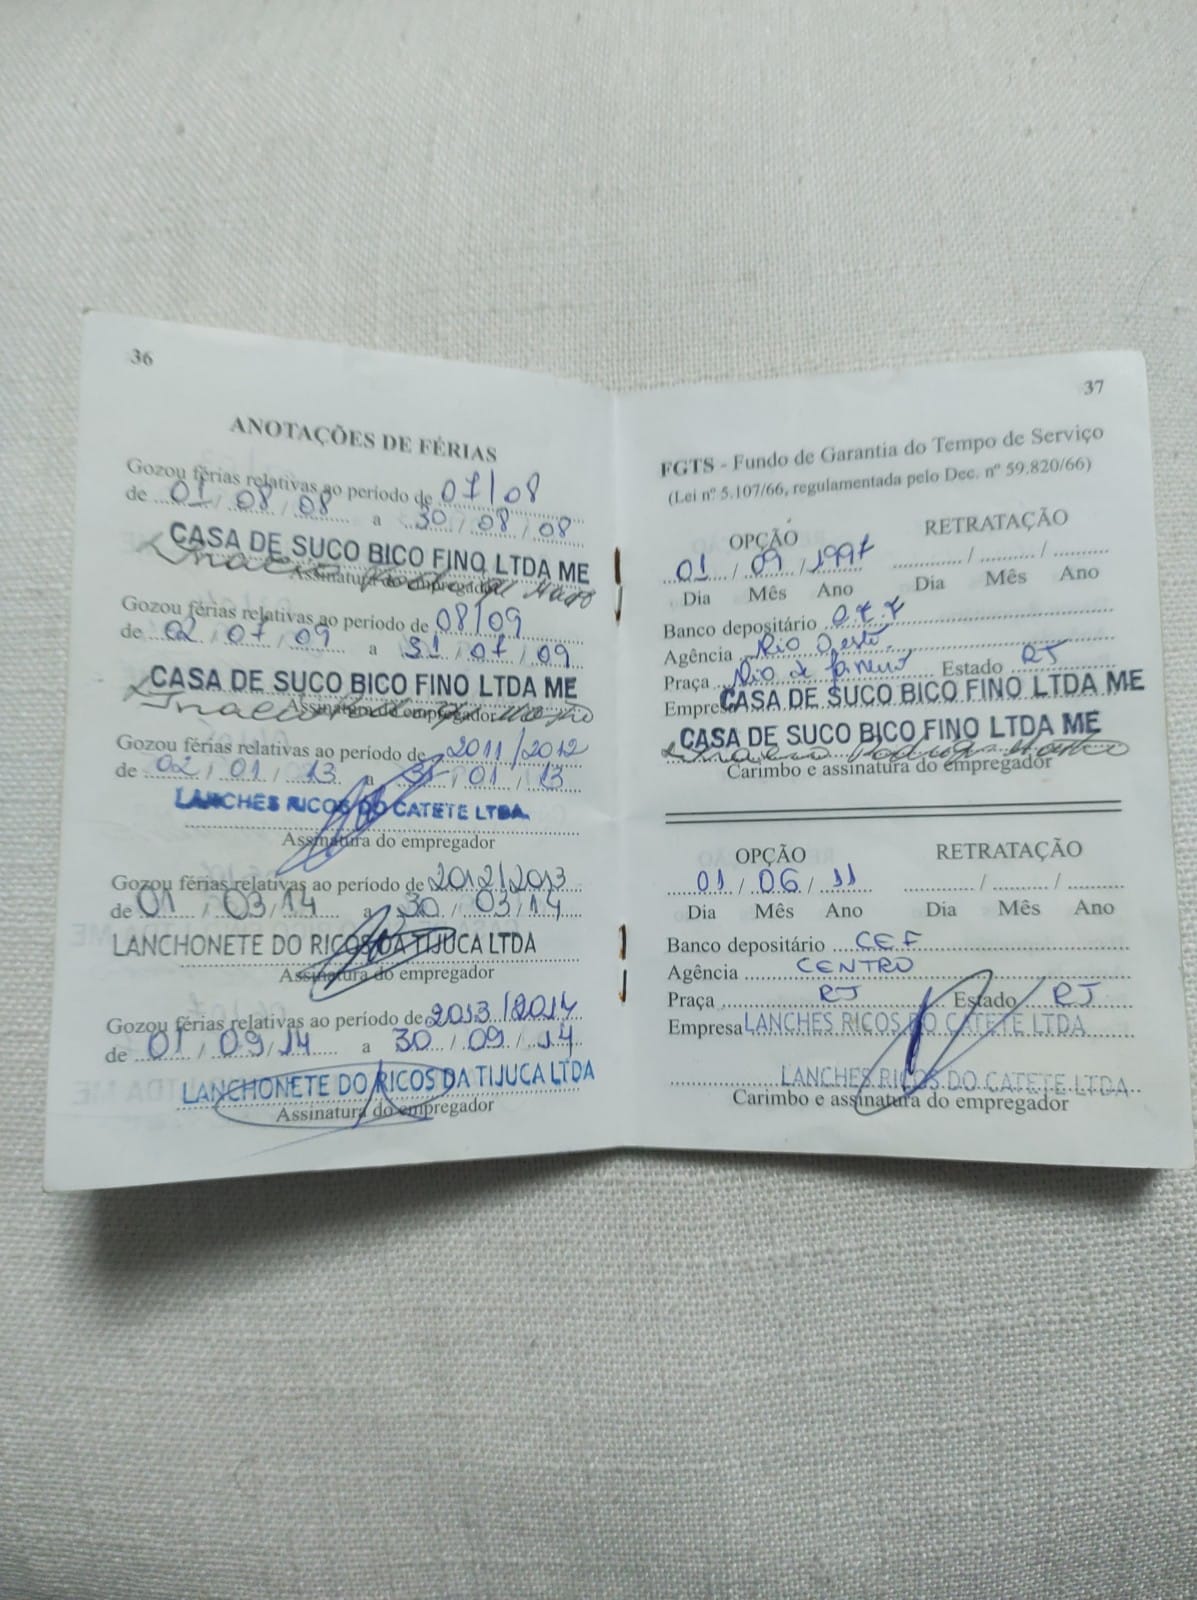 36
ANOTAÇÕES DE FÉRIAS
Gozou férias relativas ao período de 07/08
de 01 / 08 / 08 a 30 / 08 / 08
CASA DE SUCO BICO FINO LTDA ME
Assinatura do empregador
Gozou férias relativas ao período de 08/09
de 02 / 07 / 09 a 31 / 07 / 09
CASA DE SUCO BICO FINO LTDA ME
Assinatura do empregador
Gozou férias relativas ao período de 2011/2012
de 02 / 01 / 13 a 31 / 01 / 13
LANCHES RICOS DO CATETE LTDA.
Assinatura do empregador
Gozou férias relativas ao período de 2012/2013
de 01 / 03 / 14 a 30 / 03 / 14
LANCHONETE DO RICOS DA TIJUCA LTDA
Assinatura do empregador
Gozou férias relativas ao período de 2013/2014
de 01 / 09 / 14 a 30 / 09 / 14
LANCHONETE DO RICOS DA TIJUCA LTDA
Assinatura do empregador
37
FGTS - Fundo de Garantia do Tempo de Serviço
(Lei nº 5.107/66, regulamentada pelo Dec. nº 59.820/66)
OPÇÃO RETRATAÇÃO
01 / 09 / 1997 / /
Dia Mês Ano Dia Mês Ano
Banco depositário
Agência Rio
Praça Rio de Janeiro Estado RJ
Empresa CASA DE SUCO BICO FINO LTDA ME
CASA DE SUCO BICO FINO LTDA ME
Carimbo e assinatura do empregador
OPÇÃO RETRATAÇÃO
01 / 06 / 11 / /
Dia Mês Ano Dia Mês Ano
Banco depositário CEF
Agência CENTRO
Praça RJ Estado RJ
Empresa LANCHES RICOS DO CATETE LTDA
LANCHES RICOS DO CATETE LTDA.
Carimbo e assinatura do empregador